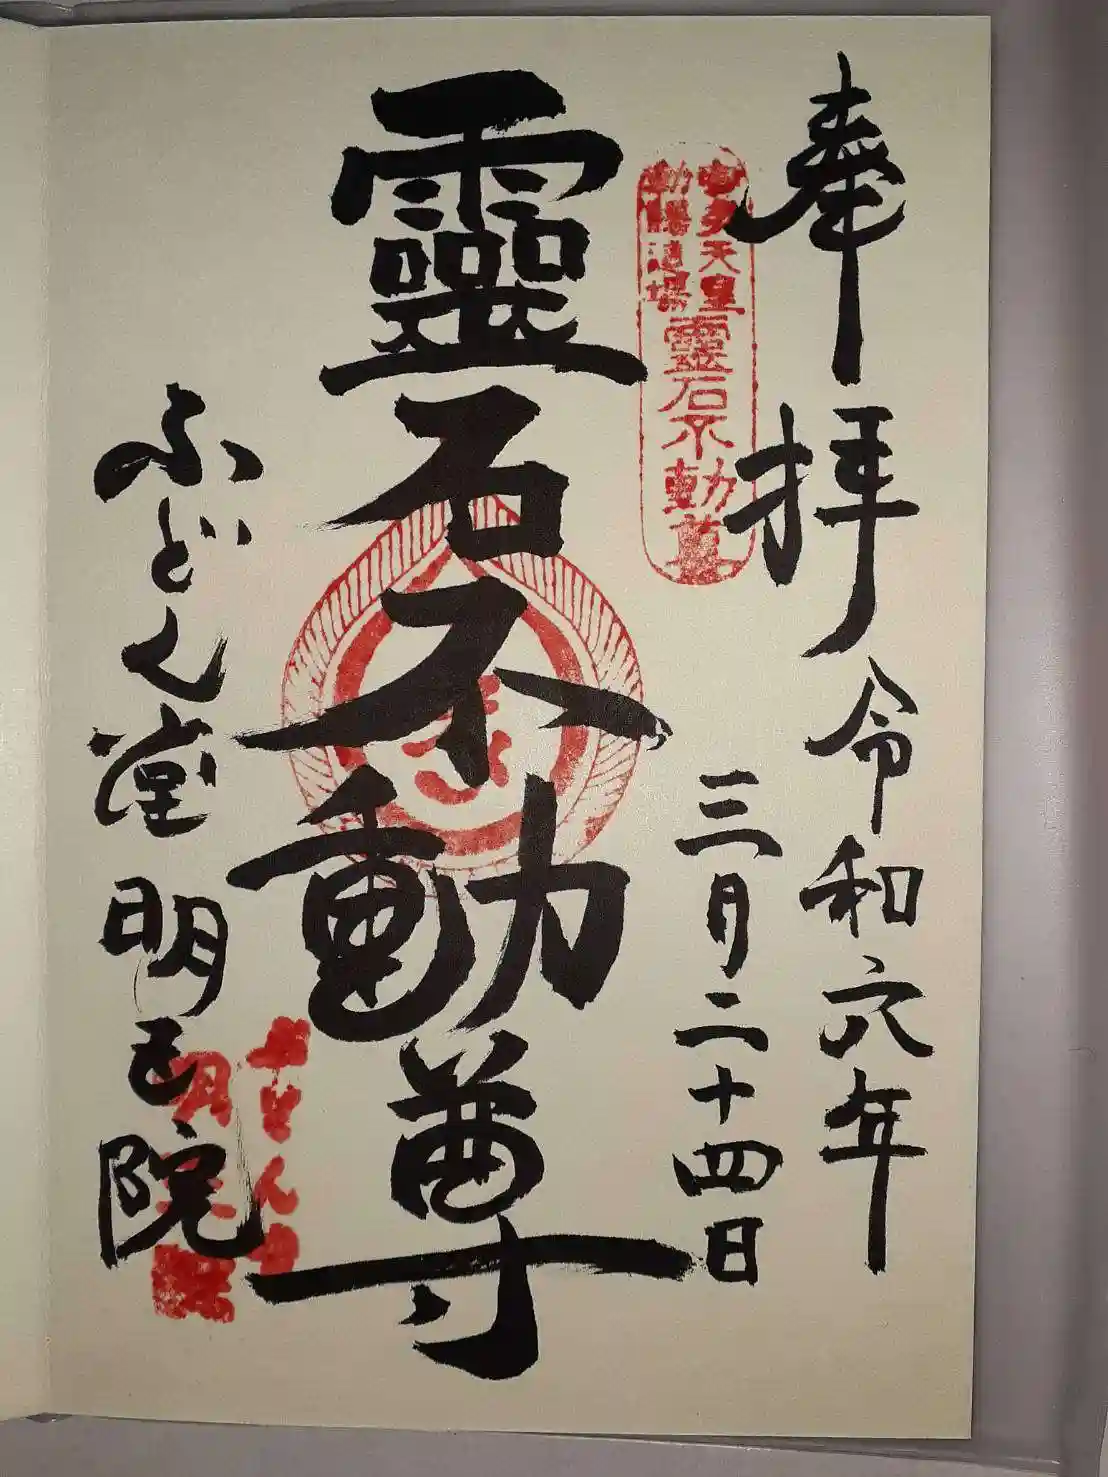 奉拝
令和六年
三月二十四日
宇多天皇
勅願道場
靈石不動尊
靈石不動尊
ふどん堂明王院